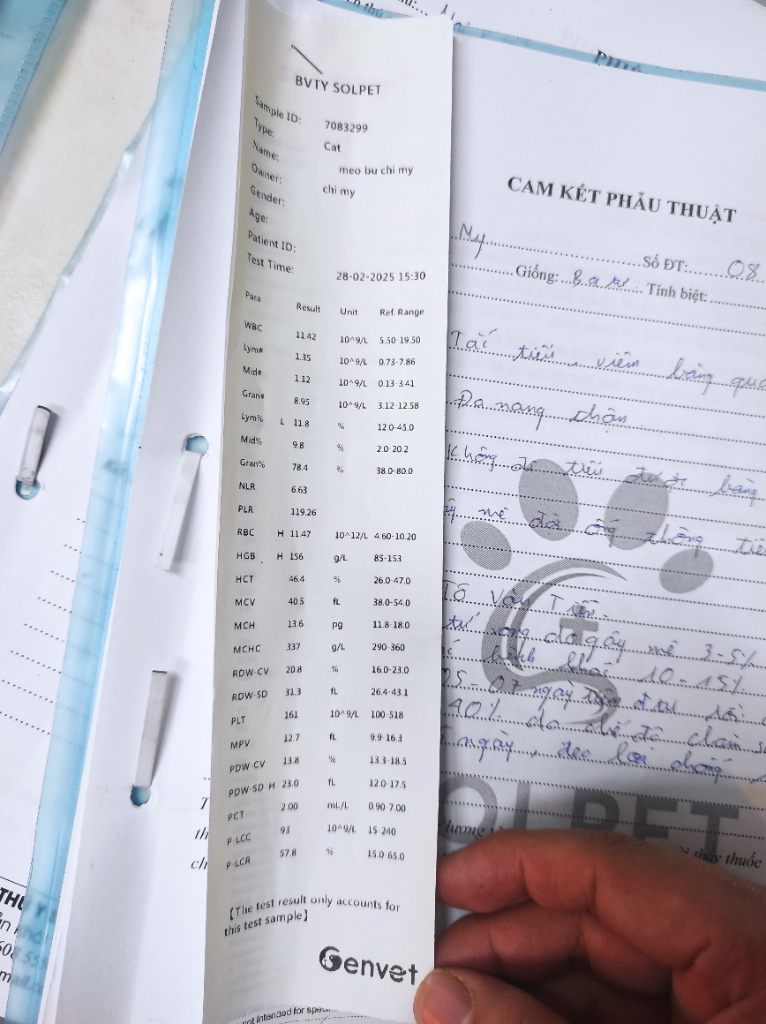 BVTY SOLPET
Sample ID: 7083299
Type: Cat
Name: meo bu chi my
Owner: chi my
Gender:
Age:
Patient ID:
Test Time: 28-02-2025 15:30
Para Result Unit Ref. Range
WBC 11.42 10^9/L 5.50-19.50
Lym# 1.35 10^9/L 0.73-7.86
Mid# 1.12 10^9/L 0.13-3.41
Gran# 8.95 10^9/L 3.12-12.58
Lym% L 11.8 % 12.0-45.0
Mid% 9.8 % 2.0-20.2
Gran% 78.4 % 38.0-80.0
NLR 6.63
PLR 119.26
RBC H 11.47 10^12/L 4.60-10.20
HGB H 156 g/L 85-153
HCT 46.4 % 26.0-47.0
MCV 40.5 fL 38.0-54.0
MCH 13.6 pg 11.8-18.0
MCHC 337 g/L 290-360
RDW-CV 20.8 % 16.0-23.0
RDW-SD 31.3 fL 26.4-43.1
PLT 161 10^9/L 100-518
MPV 12.7 fL 9.9-16.3
PDW-CV 13.8 % 13.3-18.5
PDW-SD H 23.0 fL 12.0-17.5
PCT 2.00 mL/L 0.90-7.00
P-LCC 93 10^9/L 15-240
P-LCR 57.8 % 15.0-65.0
【The test result only accounts for
this test sample】
Genvet
CAM KẾT PHẪU THUẬT
My Số ĐT: 08
Giống: Tính biệt:
Tắc tiểu, viêm bàng qua
Đa nang thận
Không đi tiểu được bàng
mê đặt ống thông tiể
Tô Văn Tiến
tử vong do gây mê 3-5%
10-15%
05-07 ngày
40% do chế độ chăm s
ngày, đeo loa chống
SOLPET
thầy thuốc